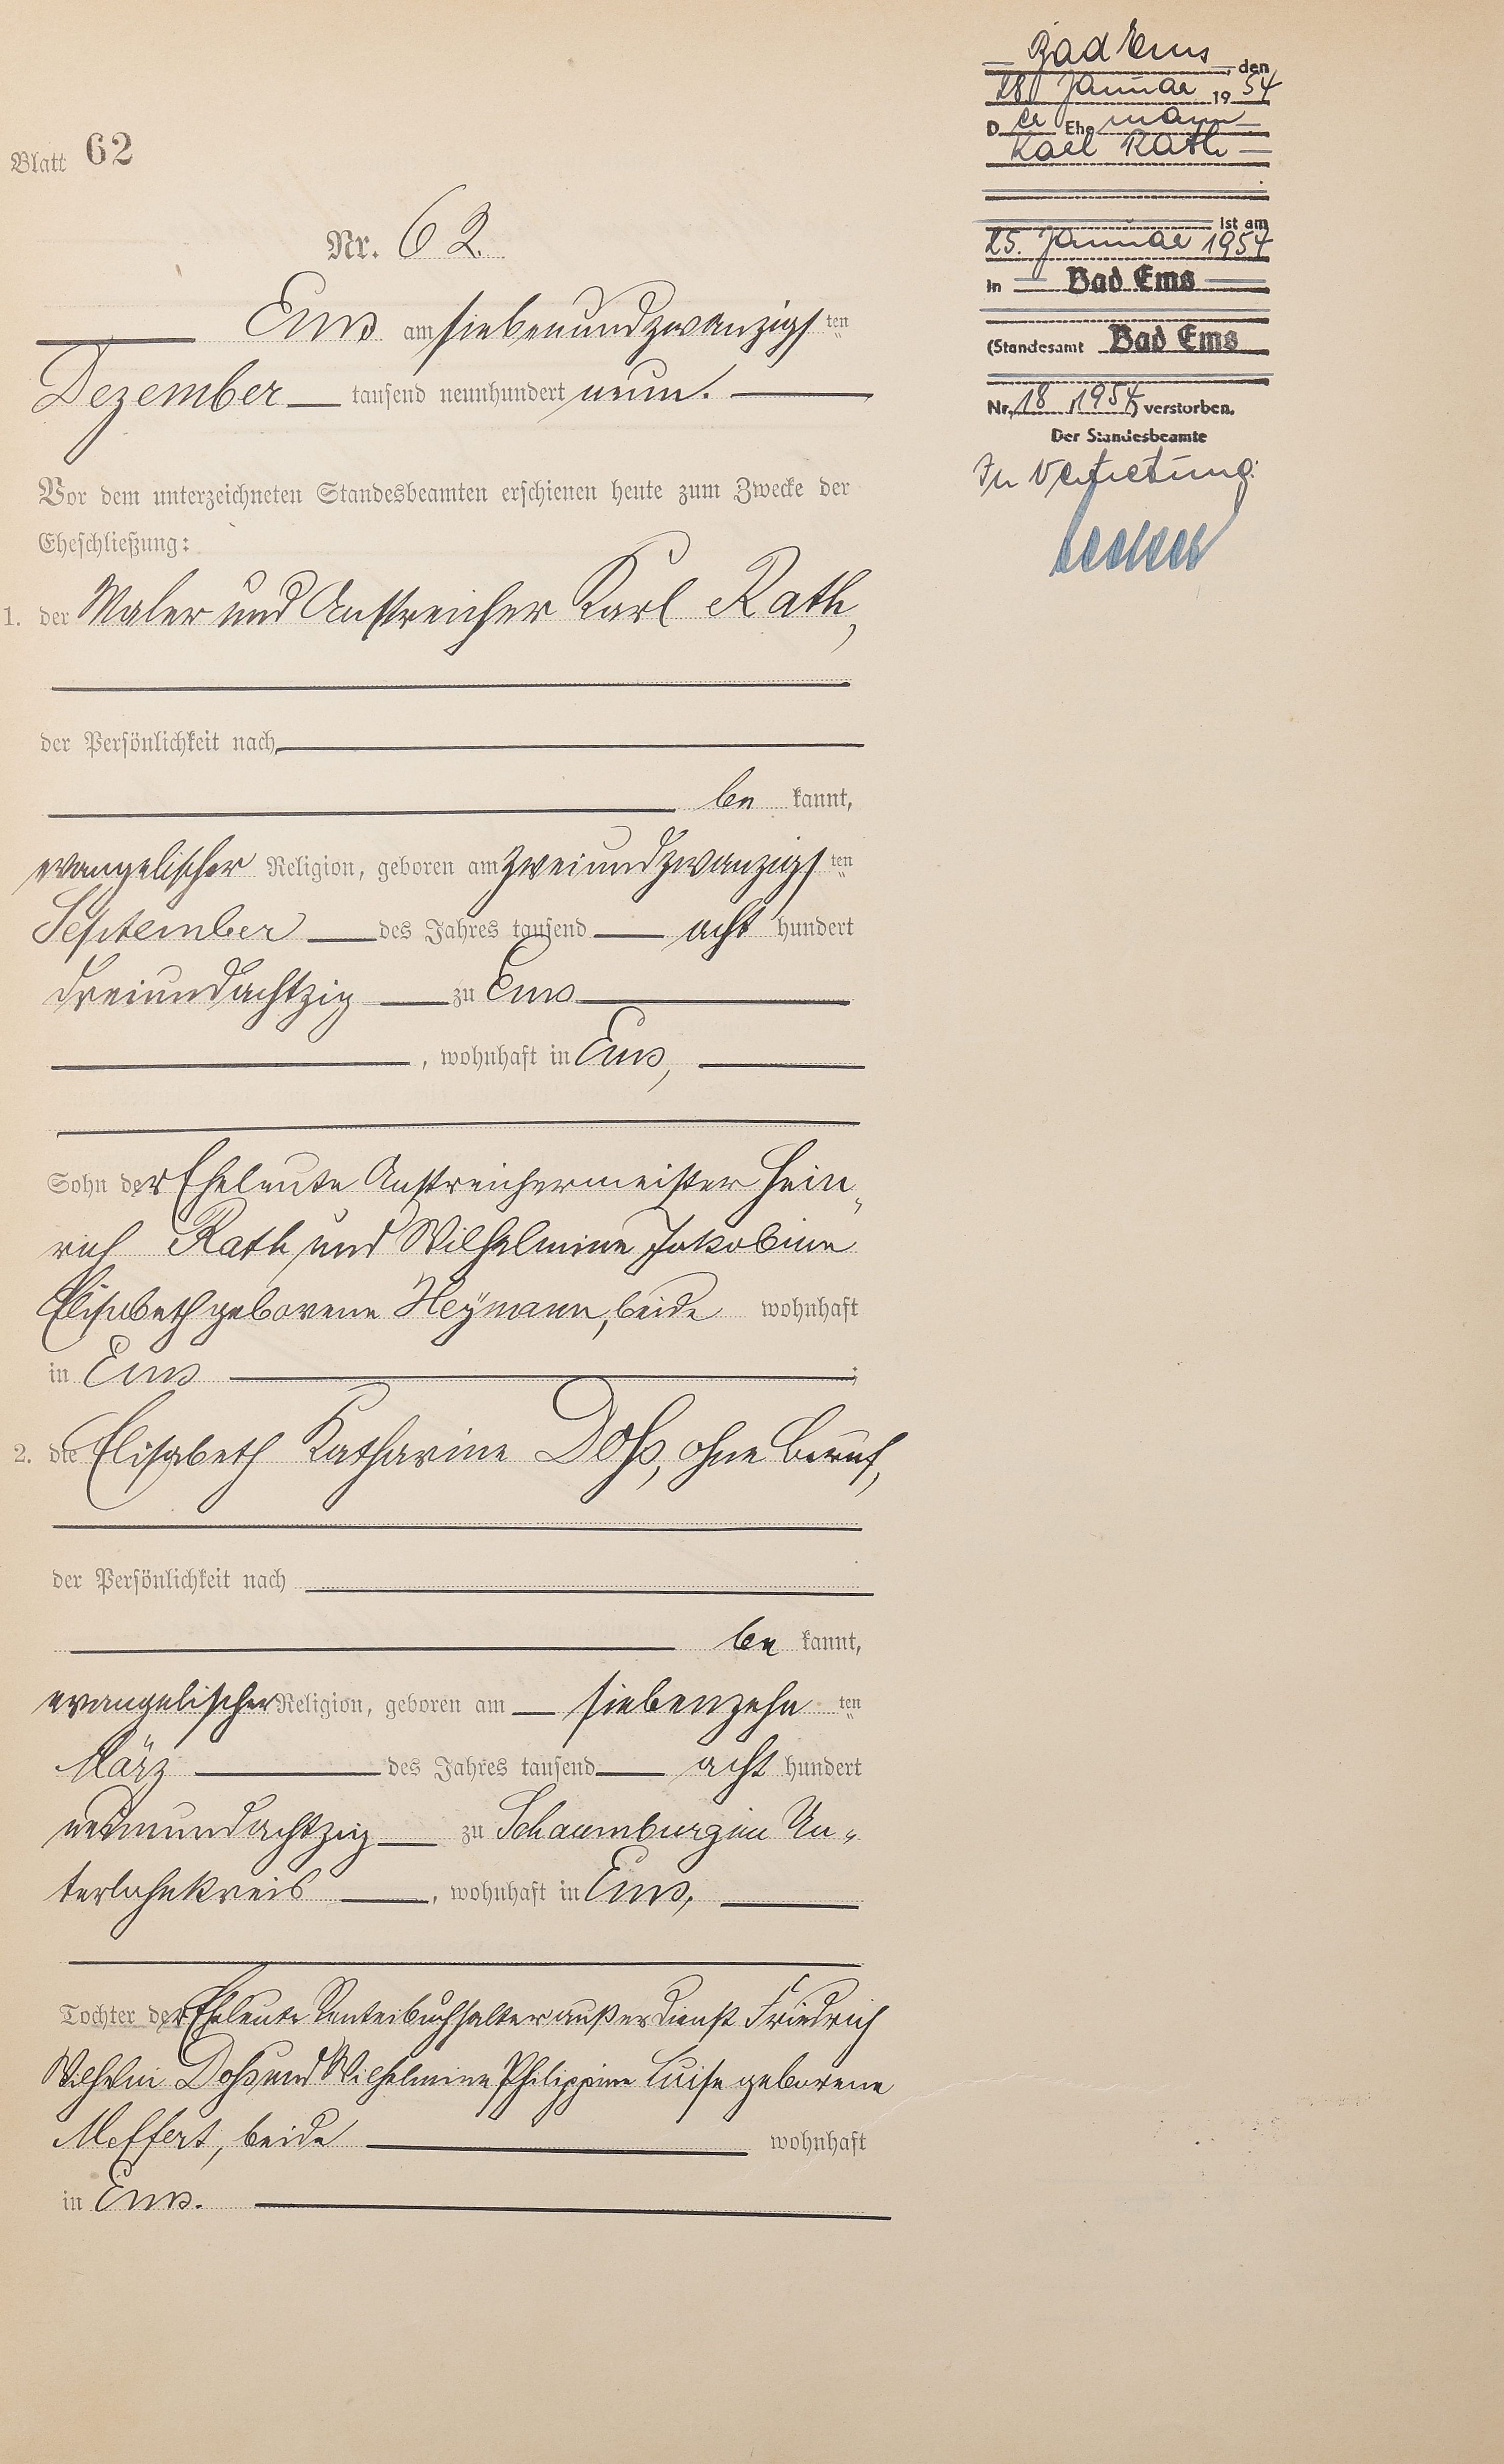 Blatt 62
Nr. 62.
Ems am siebenundzwanzigs ten
Dezember tausend neunhundert neun.
Vor dem unterzeichneten Standesbeamten erschienen heute zum Zwecke der
Eheschließung:
1. der Maler und Anstreicher Karl Rath,
der Persönlichkeit nach
be kannt,
evangelischer Religion, geboren am zweiundzwanzigs ten
September des Jahres tausend acht hundert
dreiundachtzig zu Ems
, wohnhaft in Ems,
Sohn der Eheleute Anstreichermeister Hein„
rich Rath und Wilhelmine Jakobine
Elisabeth geborene Heymann, beide wohnhaft
in Ems ;
2. die Elisabeth Katharine Dohs, ohne Beruf,
der Persönlichkeit nach
be kannt,
evangelischer Religion, geboren am siebenzehn ten
März des Jahres tausend acht hundert
neunundachtzig zu Schaumburg im Un„
terlahnkreis , wohnhaft in Ems,
Tochter der Eheleute Renteibuchhalter außer Dienst Friedrich
Wilhelm Dohs und Wilhelmine Philippine Luise geborene
Meffert, beide wohnhaft
in Ems.
Bad Ems, den
28. Januar 19 54
D er Ehe mann
Karl Rath
ist am
25. Januar 1954
in Bad Ems
(Standesamt Bad Ems
Nr. 18 / 1954) verstorben.
Der Standesbeamte
In Vertretung: